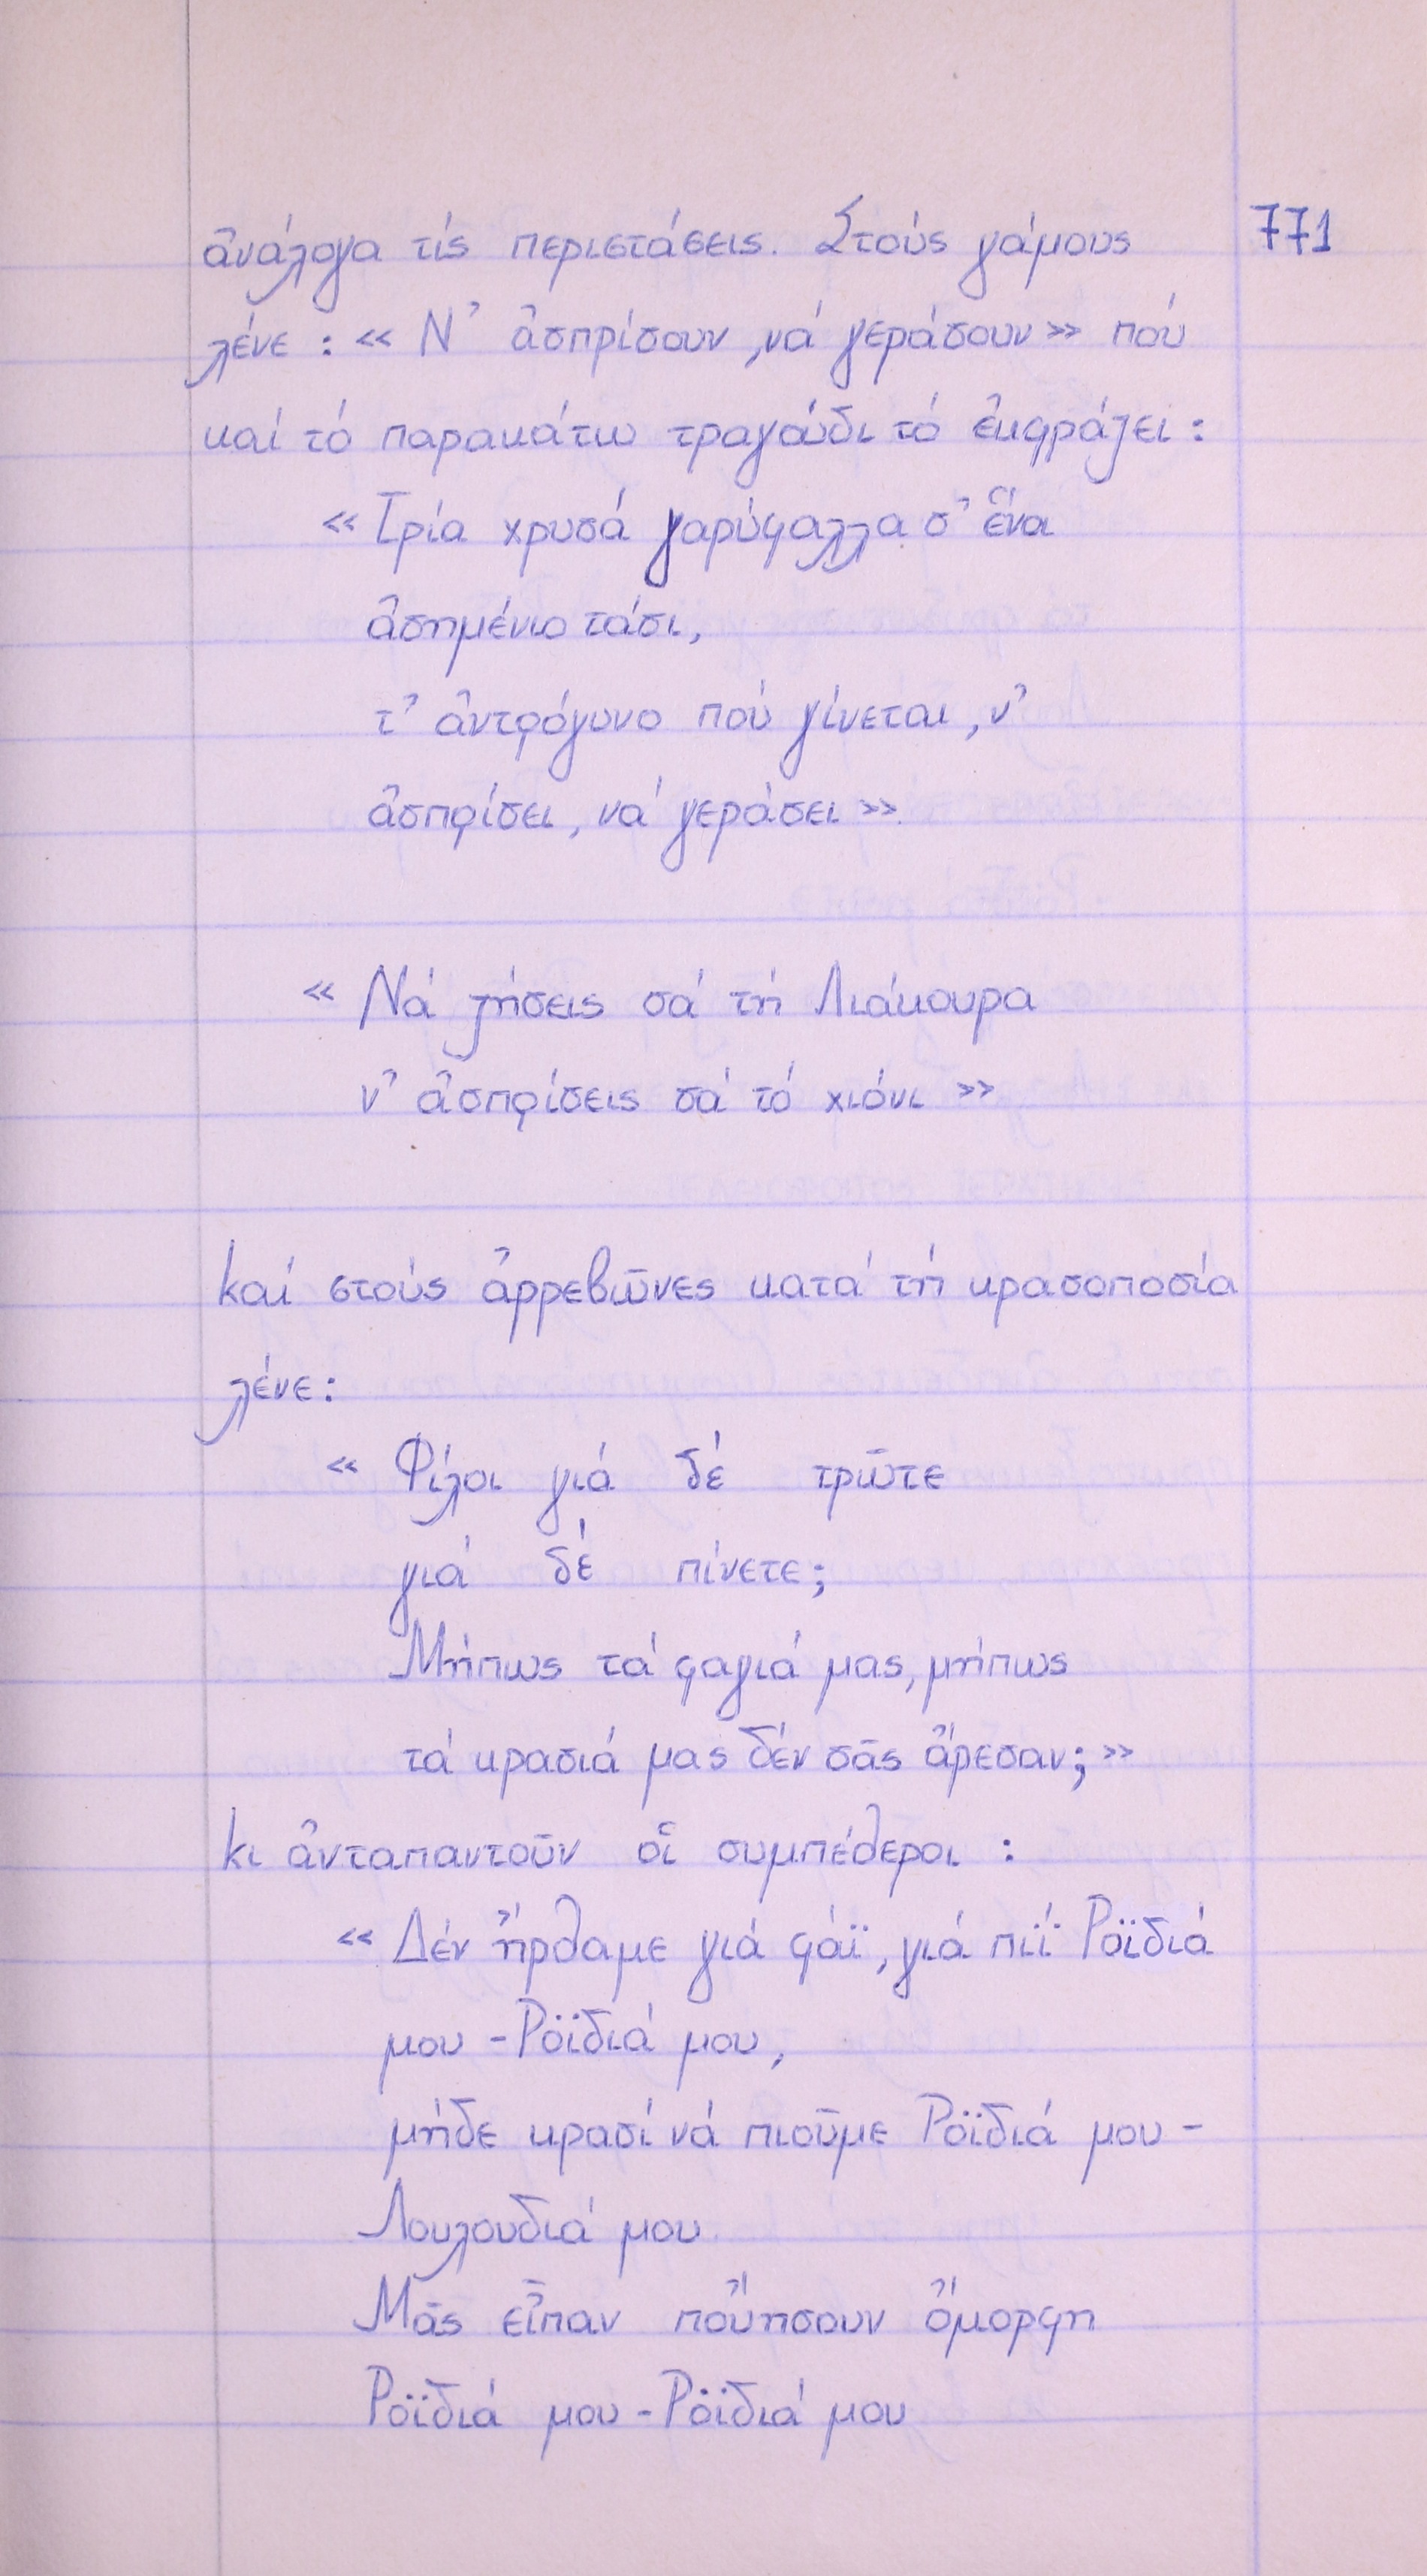 771
ἀνάλογα τίς περιστάσεις. Στούς γάμους
λένε : « Ν' ἀσπρίσουν, νά γεράσουν» πού
καί τό παρακάτω τραγούδι τό ἐκφράζει :
« Τρία χρυσά γαρύφαλλα σ' ἕνα
ἀσημένιο τάσι,
τ' ἀντρόγυνο πού γίνεται, ν'
ἀσπρίσει, νά γεράσει».
« Νά ζήσεις σά τή Λιάκουρα
ν' ἀσπρίσεις σά τό χιόνι »
Καί στούς ἀρρεβῶνες κατά τή κρασοποσία
λένε :
« Φίλοι γιά δέ τρῶτε
γιά δέ πίνετε;
Μήπως τά φαγιά μας, μήπως
τά κρασιά μας δέν σᾶς ἄρεσαν; »
Κι ἀνταπαντοῦν οἱ συμπέθεροι :
« Δέν ἤρθαμε γιά φάϊ, γιά πιί Ροϊδιά
μου - Ροϊδιά μου,
μήδε κρασί νά πιοῦμε Ροϊδιά μου -
Λουλουδιά μου
Μᾶς εἶπαν ποὔησουν ὄμορφη
Ροϊδιά μου - Ροϊδιά μου